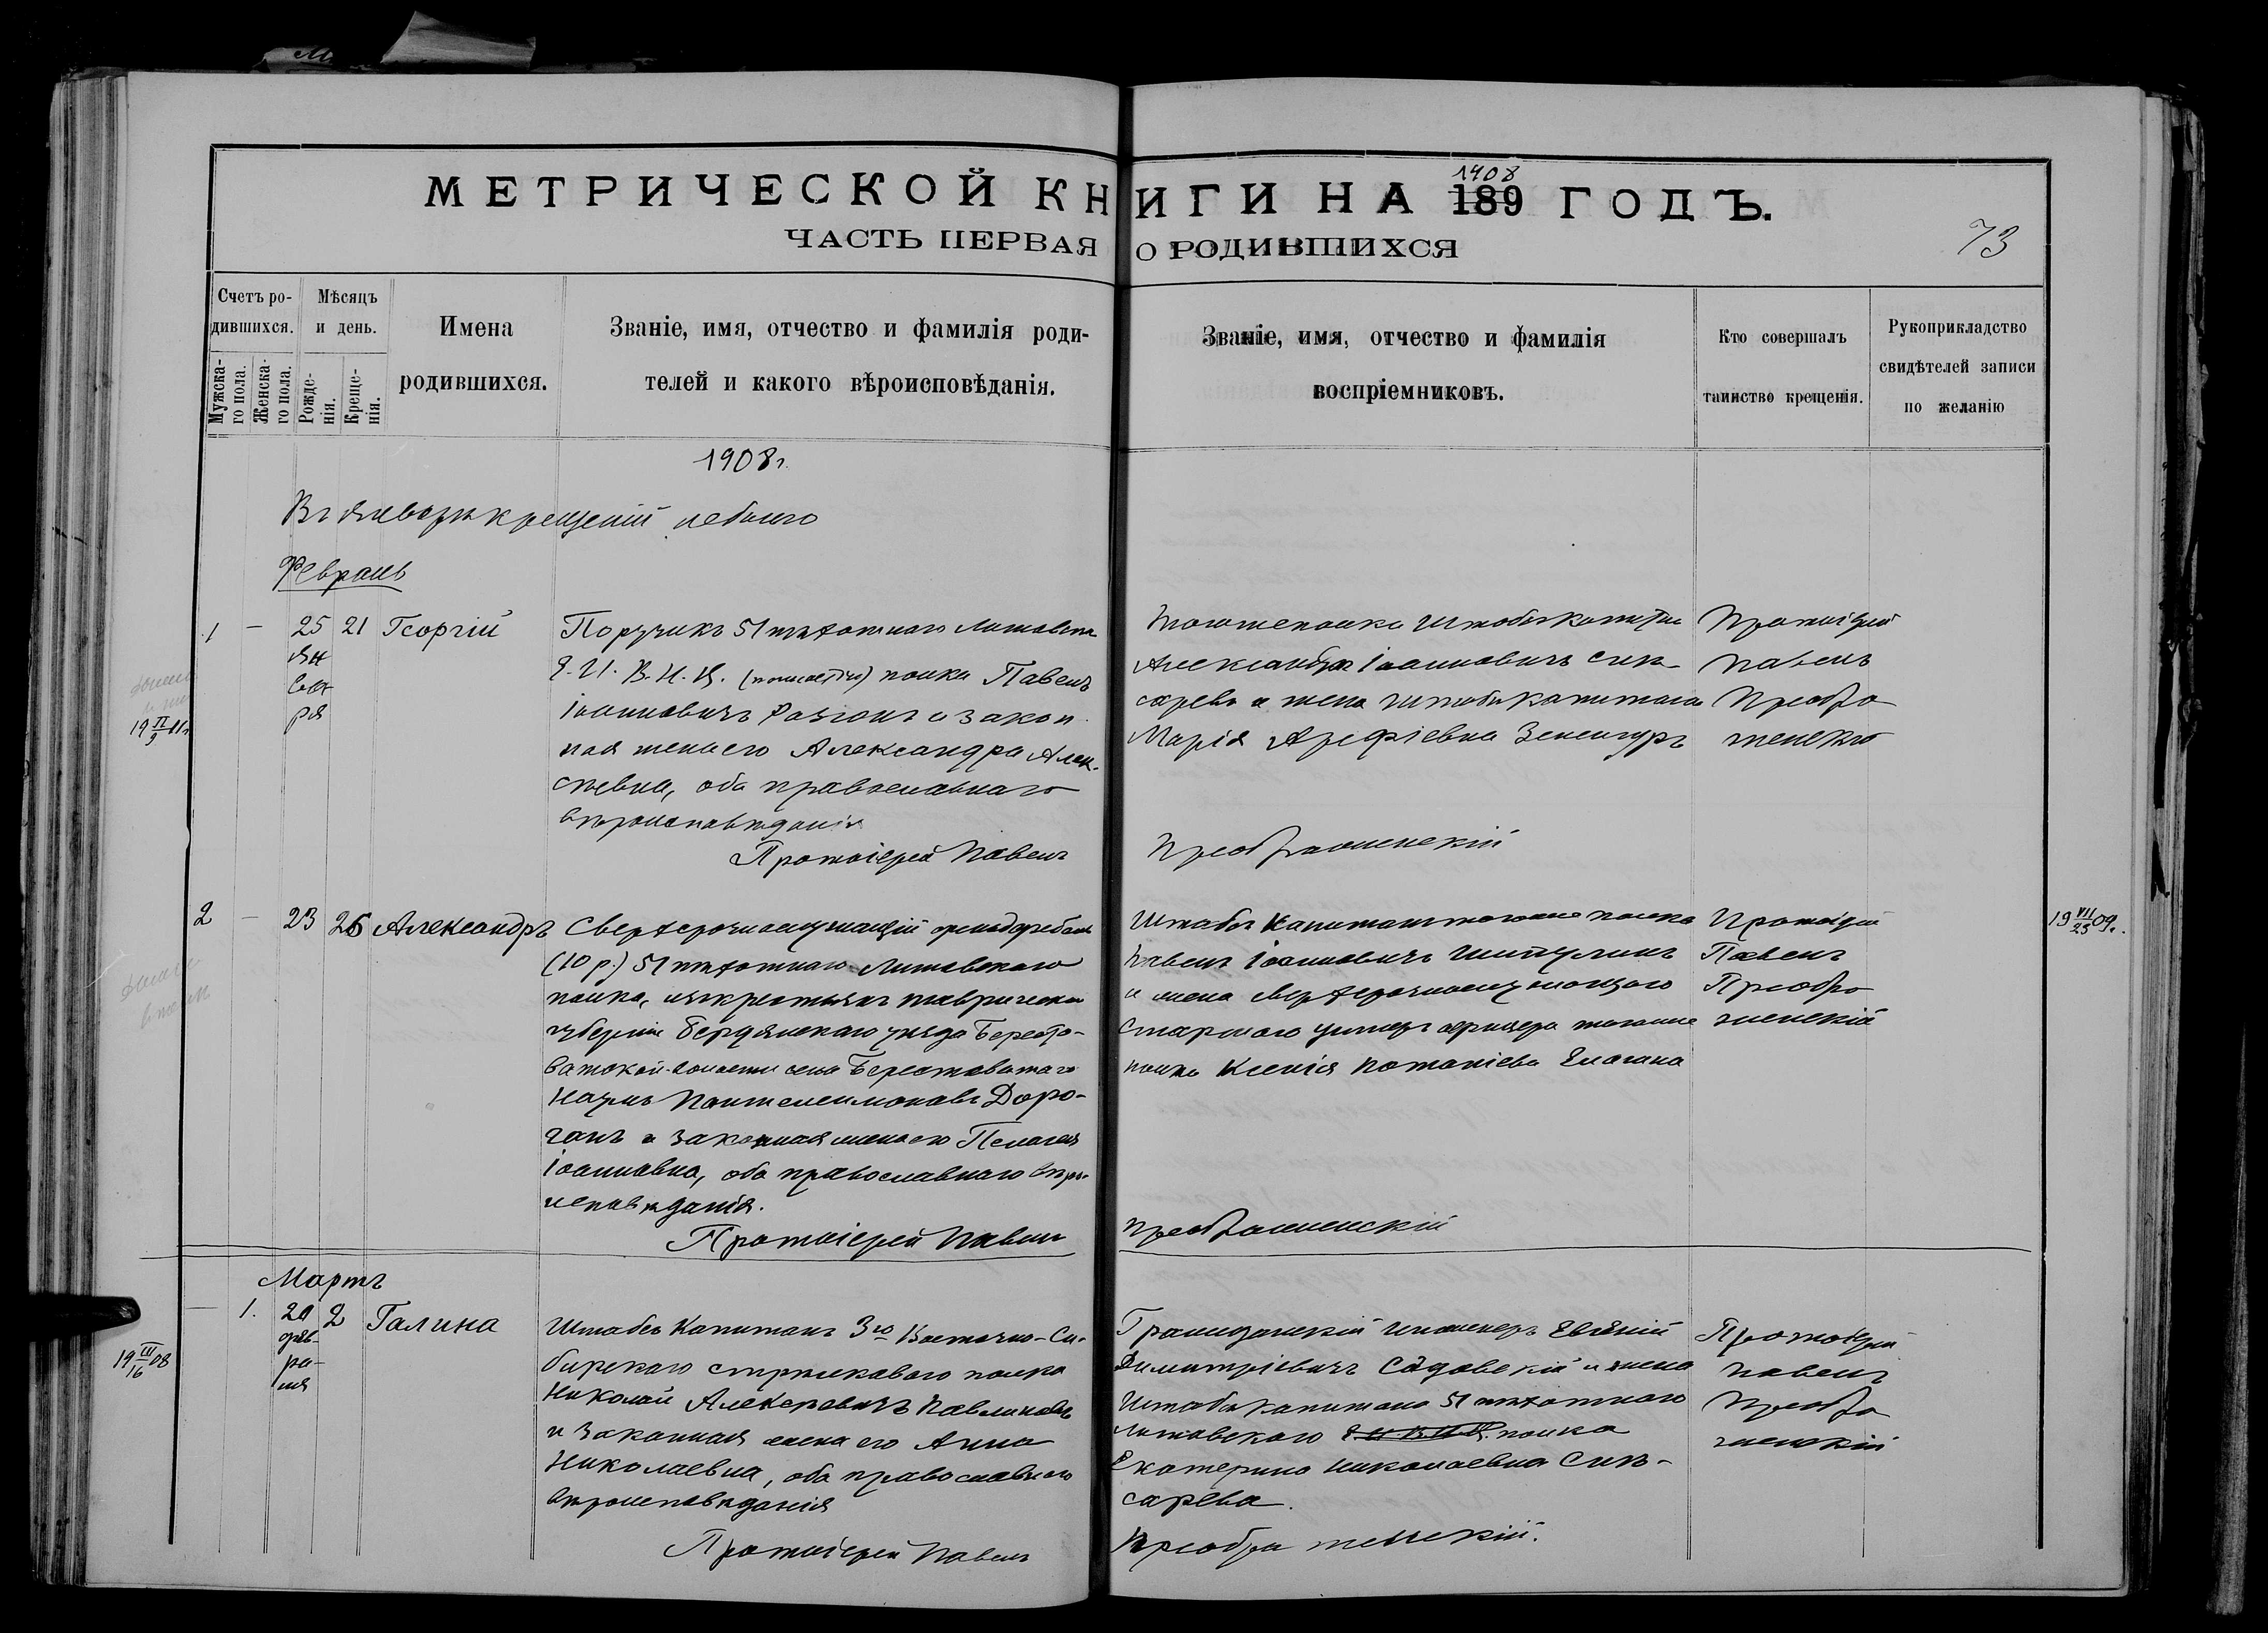 МЕТРИЧЕСКОЙ КНИГИ НА 189 ГОДЪ.
1908
ЧАСТЬ ПЕРВАЯ О РОДИВШИХСЯ
73
Счетъ ро-
дившихся.
Мужска-
го пола.
Женска-
го пола.
Мѣсяцъ
и день.
Рожде-
нія.
Креще-
нія.
Имена
родившихся.
Званіе, имя, отчество и фамилія роди-
телей и какого вѣроисповѣданія.
Званіе, имя, отчество и фамилія
воспріемниковъ.
Кто совершалъ
таинство крещенія.
Рукоприкладство
свидѣтелей записи
по желанію
1908 г.
Въ январѣ крещеній не было
Февраль
1 — 25 21 Георгій
Ян
ва
ря
19 VI/9 11 г.
Поручикъ 51 пѣхотнаго Литовск.
Е. И. В. Н. Ц. полка Павелъ
Іоанновичъ и закон
ная жена его Александра Алек-
сѣевна, оба православнаго
вѣроисповѣданія
Протоіерей Павелъ
Тогоже полка Штабсъ Капитанъ
Александръ Іоанновичъ Слю-
саревъ и жена штабсъ капитана
Марія Арефіевна
Преображенскій
Протоіерей
Павелъ
Преобра
женскій
2 — 23 26 Александръ
Сверхсрочнослужащій фельдфебель
(10 р.) 51 пѣхотнаго Литовскаго
полка, изъ крестьянъ Таврической
губерніи Бердянскаго уѣзда Бересто-
ватской волости села Берестоватаго
Наумъ Пантелеимоновъ Доро-
ганъ и законная жена его Пелагея
Іоанновна, оба православнаго вѣро-
исповѣданія.
Протоіерей Павелъ
Штабсъ Капитанъ тогоже полка
Павелъ Іоанновичъ
и жена сверхсрочнослужащаго
старшаго унтеръ офицера тогоже
полка Ксенія Потапіева Елагина
Преображенскій
Протоіерей
Павелъ
Преобра
женскій
19 VII/23 09 г.
Мартъ
— 1. 20 2 Галина
фев-
ра-
ля
19 III/16 08
Штабсъ Капитанъ 3го Восточно-Си-
бирскаго стрѣлковаго полка
Николай Алексѣевичъ Павликовъ
и законная жена его Анна
Николаевна, оба православнаго
вѣроисповѣданія
Протоіерей Павелъ
Гражданскій инженеръ Евгеній
Димитріевичъ Садовскій и жена
Штабсъ капитана 51 пѣхотнаго
Литовскаго Е. И. В. Н. Ц. полка
Екатерина Николаевна Слю-
сарева.
Преображенскій.
Протоіерей
Павелъ
Преобра
женскій